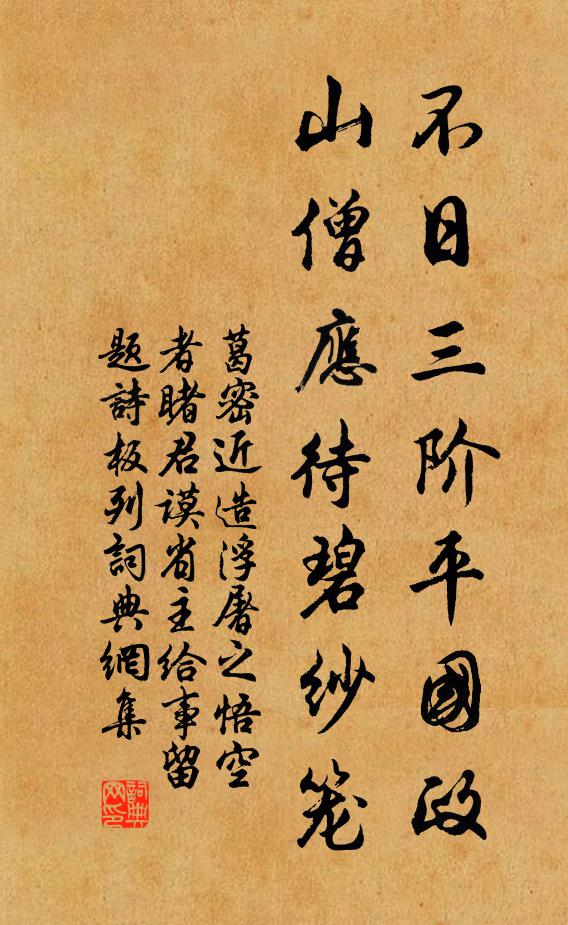 不日三阶平國政
山僧應待碧纱笼
葛密近造浮屠之悟空
者睹君谟省主给事留
题詩板列詞典網集
詞典网印